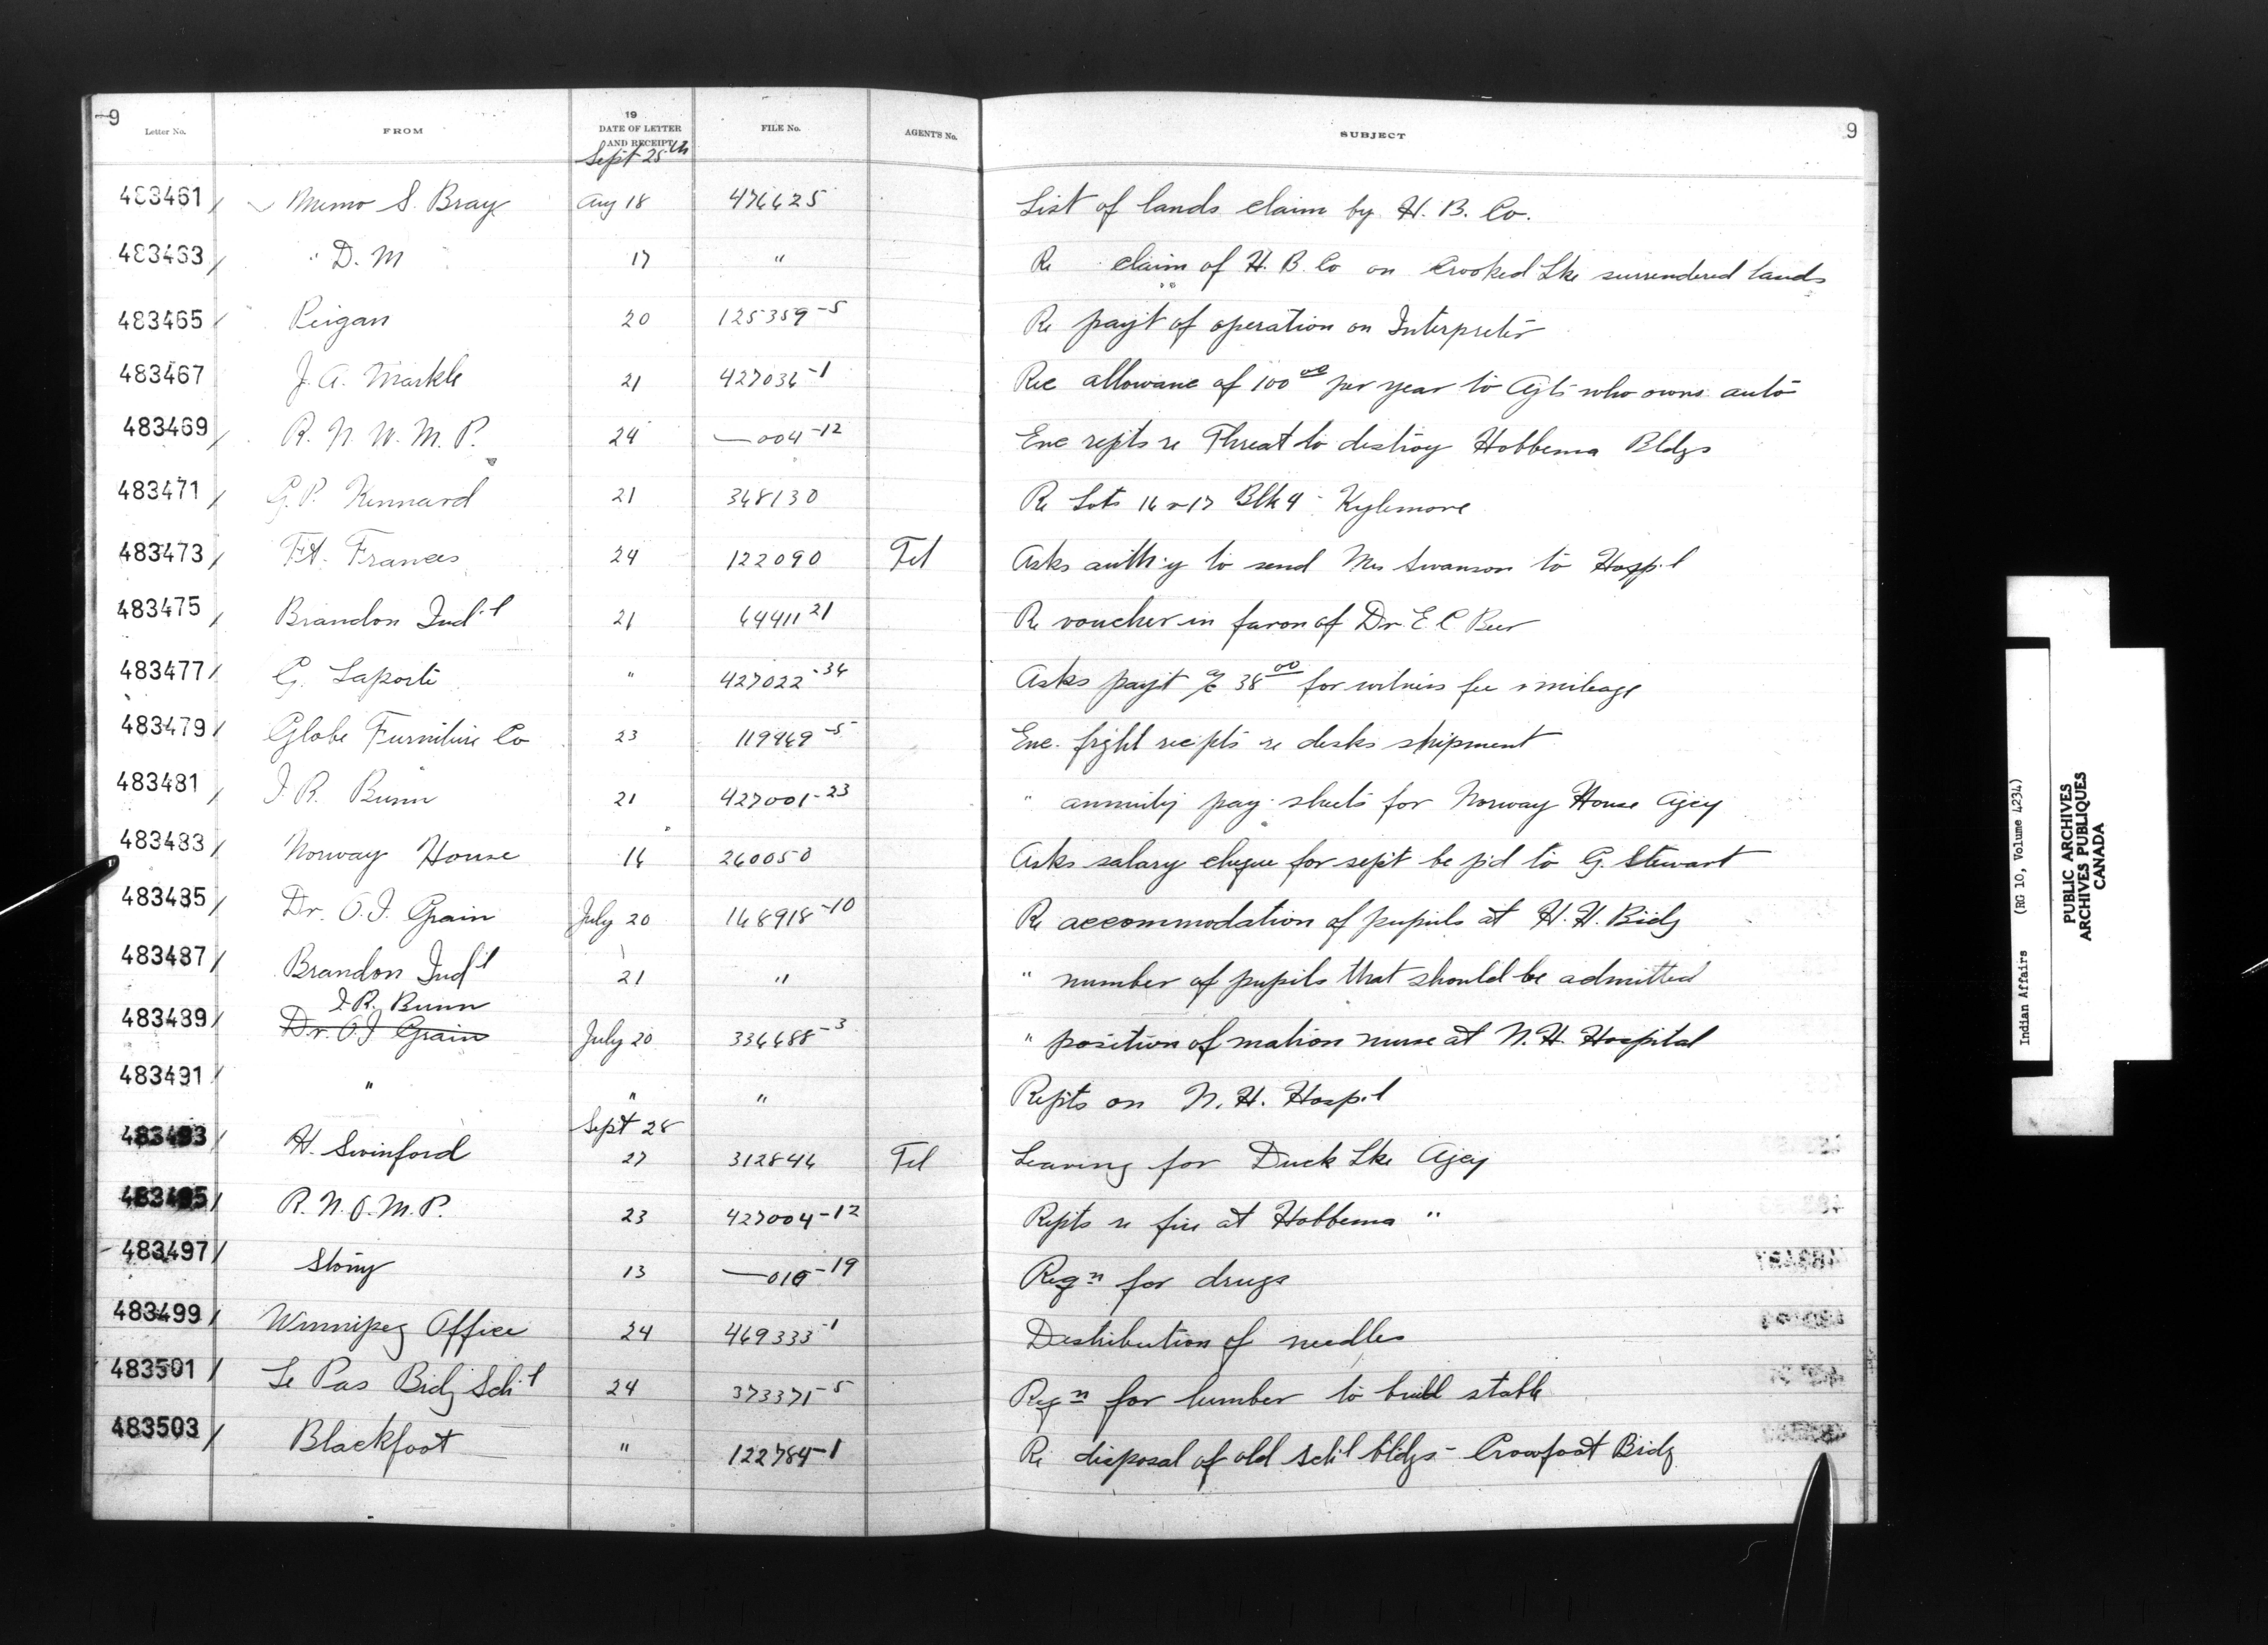 9 9
Letter No. FROM 19 DATE OF LETTER AND RECEIPT FILE No. AGENT'S No. SUBJECT
Sept 25th
483461 / Memo S. Bray Aug 18 476625 List of lands claim by H. B. Co.
483463 / " D. M 17 " Re claim of H. B. Co on Crooked Lke surrendered lands
483465 / Peigan 20 125359-5 Re payt of operation on Interpreter
483467 J. A. Markle 21 427036-1 Rec allowane of 100 00 per year to Agts who owns auto
483469 / R. N. W. M. P. 24 —004-12 Enc repts re Threat to destroy Hobbema Bldgs
483471 / G. P. Kennard 21 368130 Re Lots 16 & 17 Blk 4 - Kylemore
483473 / Ft. Frances 24 122090 Tel Asks auth'y to send Mrs Swanson to Hosp'l
483475 / Brandon Ind'l 21 64411 21 Re voucher in favor of Dr. E C Beer
483477 / G. Laporte " 427022-36 Asks payt a/c 38 00 for witness fee & mileage
483479 / Globe Furniture Co 23 119969-5 Enc. frght recpts re desks shipment
483481 / J. R. Bunn 21 427001-23 " annuity pay-sheets for Norway House Agcy
483483 / Norway House 16 260050 Asks salary cheque for sept be p'd to G. Stewart
483485 / Dr. O. I. Grain July 20 168918-10 Re accommodation of pupils at H. H. Bidg
483487 / Brandon Ind'l 21 " " number of pupils that should be admitted
J. R. Bunn
483489 / Dr. O I Grain July 20 336688-3 " position of matron nurse at N. H. Hospital
483491 / " " " Repts on N. H. Hosp'l
Sept 28
483493 / H. Swinford 27 312846 Tel Leaving for Duck Lke Agcy
483495 / R. N. O. M. P. 23 427004-12 Repts re fire at Hobbema "
483497 / Stony 13 —016-19 Reqn for drugs
483499 / Winnipeg Office 24 469333-1 Distribution of needles
483501 / Le Pas Bidg Sch'l 24 373371-5 Reqn for lumber to build stable
483503 / Blackfoot " 122784-1 Re disposal of old sch'l bldgs - Crowfoot Bidg
Indian Affairs (RG 10, Volume 4234)
PUBLIC ARCHIVES
ARCHIVES PUBLIQUES
CANADA